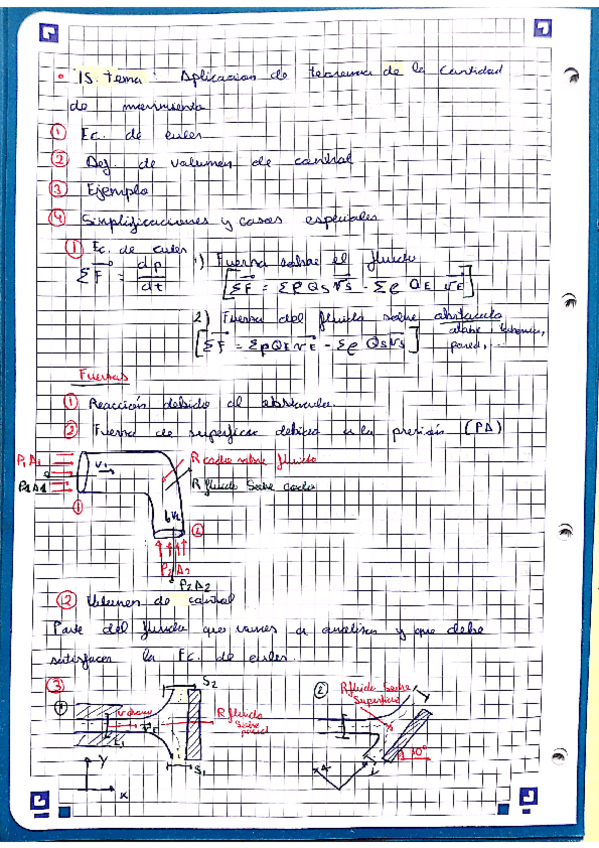 • 15. tema: Aplicacion de teorema de la cantidad
de movimiento
① Ec. de euler
② Def. de volumen de control
③ Ejemplo
④ Simplificaciones y casos especiales
① Ec. de euler
ΣF = dp/dt
1) Fuerza sobre el fluido
[ΣF = Σρ Qs vs - Σρ QE vE]
2) Fuerza del fluido sobre obstaculo
pared, ...
[ΣF = Σρ QE vE - Σρ Qs vs]
Fuerzas
① Reacción debido al obstáculo.
② Fuerza de superficie debida a la presión (PA)
P1A1
V1
R codo sobre fluido
P1A1
R fluido sobre codo
①
V2
②
P2A2
P2A2
② Volumen de control
Parte del fluido que vamos a analizar y que debe
satisfacer la Ec. de euler.
③
①
S2
R fluido
sobre
pared
E1
S1
y
x
②
R fluido sobre
superficie